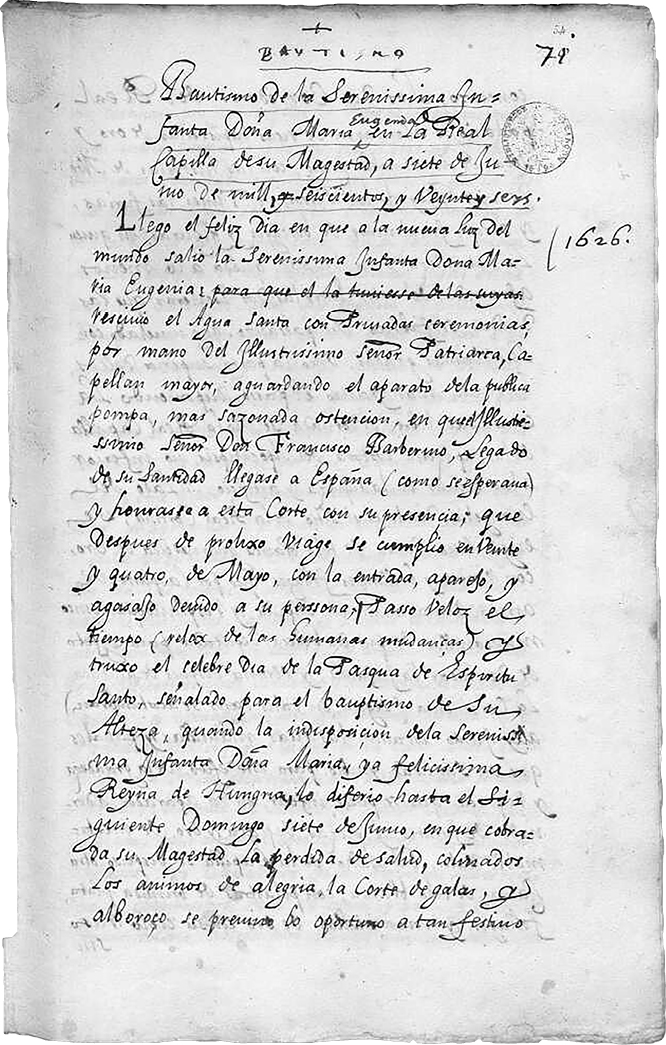 +
BAUTISMO
71
Bautismo de la Serenissima In=
fanta Doña Maria Eugenia en La Real
Capilla de su Magestad, a siete de Ju
nio de mill, y seiscientos, y Veynte y seys.
1626.
Llego el feliz dia en que a la nueva luz del
mundo salio la Serenissima Infanta Dona Ma-
ria Eugenia: para que el la tuuiesse de las suyas
resciuio el Agua Santa con Priuadas ceremonias,
por mano del Illustrissimo señor Patriarca, Ca-
pellan mayor, aguardando el aparato de la publica
pompa, mas sazonada ostencion, en que el Illustri-
ssimo Señor Don Francisco Barberino, Legado
de su Santidad llegase a España (como se esperaua)
y honrasse a esta Corte con su presencia; que
Despues de prolixo viage se cumplio en Veinte
y quatro, de Mayo, con la entrada, aparejo, y
agasajo deuido a su perssona, Passo Veloz el
tiempo (relox de las humanas mudanças) y
truxo el celebre Dia de la Pasqua de Espiritu
Santo, señalado para el bauptismo de Su
Alteza, quando la indisposicion de la Serenissi
ma Infanta Doña Maria, ya felicissima
Reyna de Hungria, lo diferio hasta el Si-
guiente Domingo siete de Junio, en que cobra-
da su Magestad La perdida de salud, colmados
Los animos de alegria, la Corte de galas, y
alboroço se preuino lo oportuno a tan festiuo